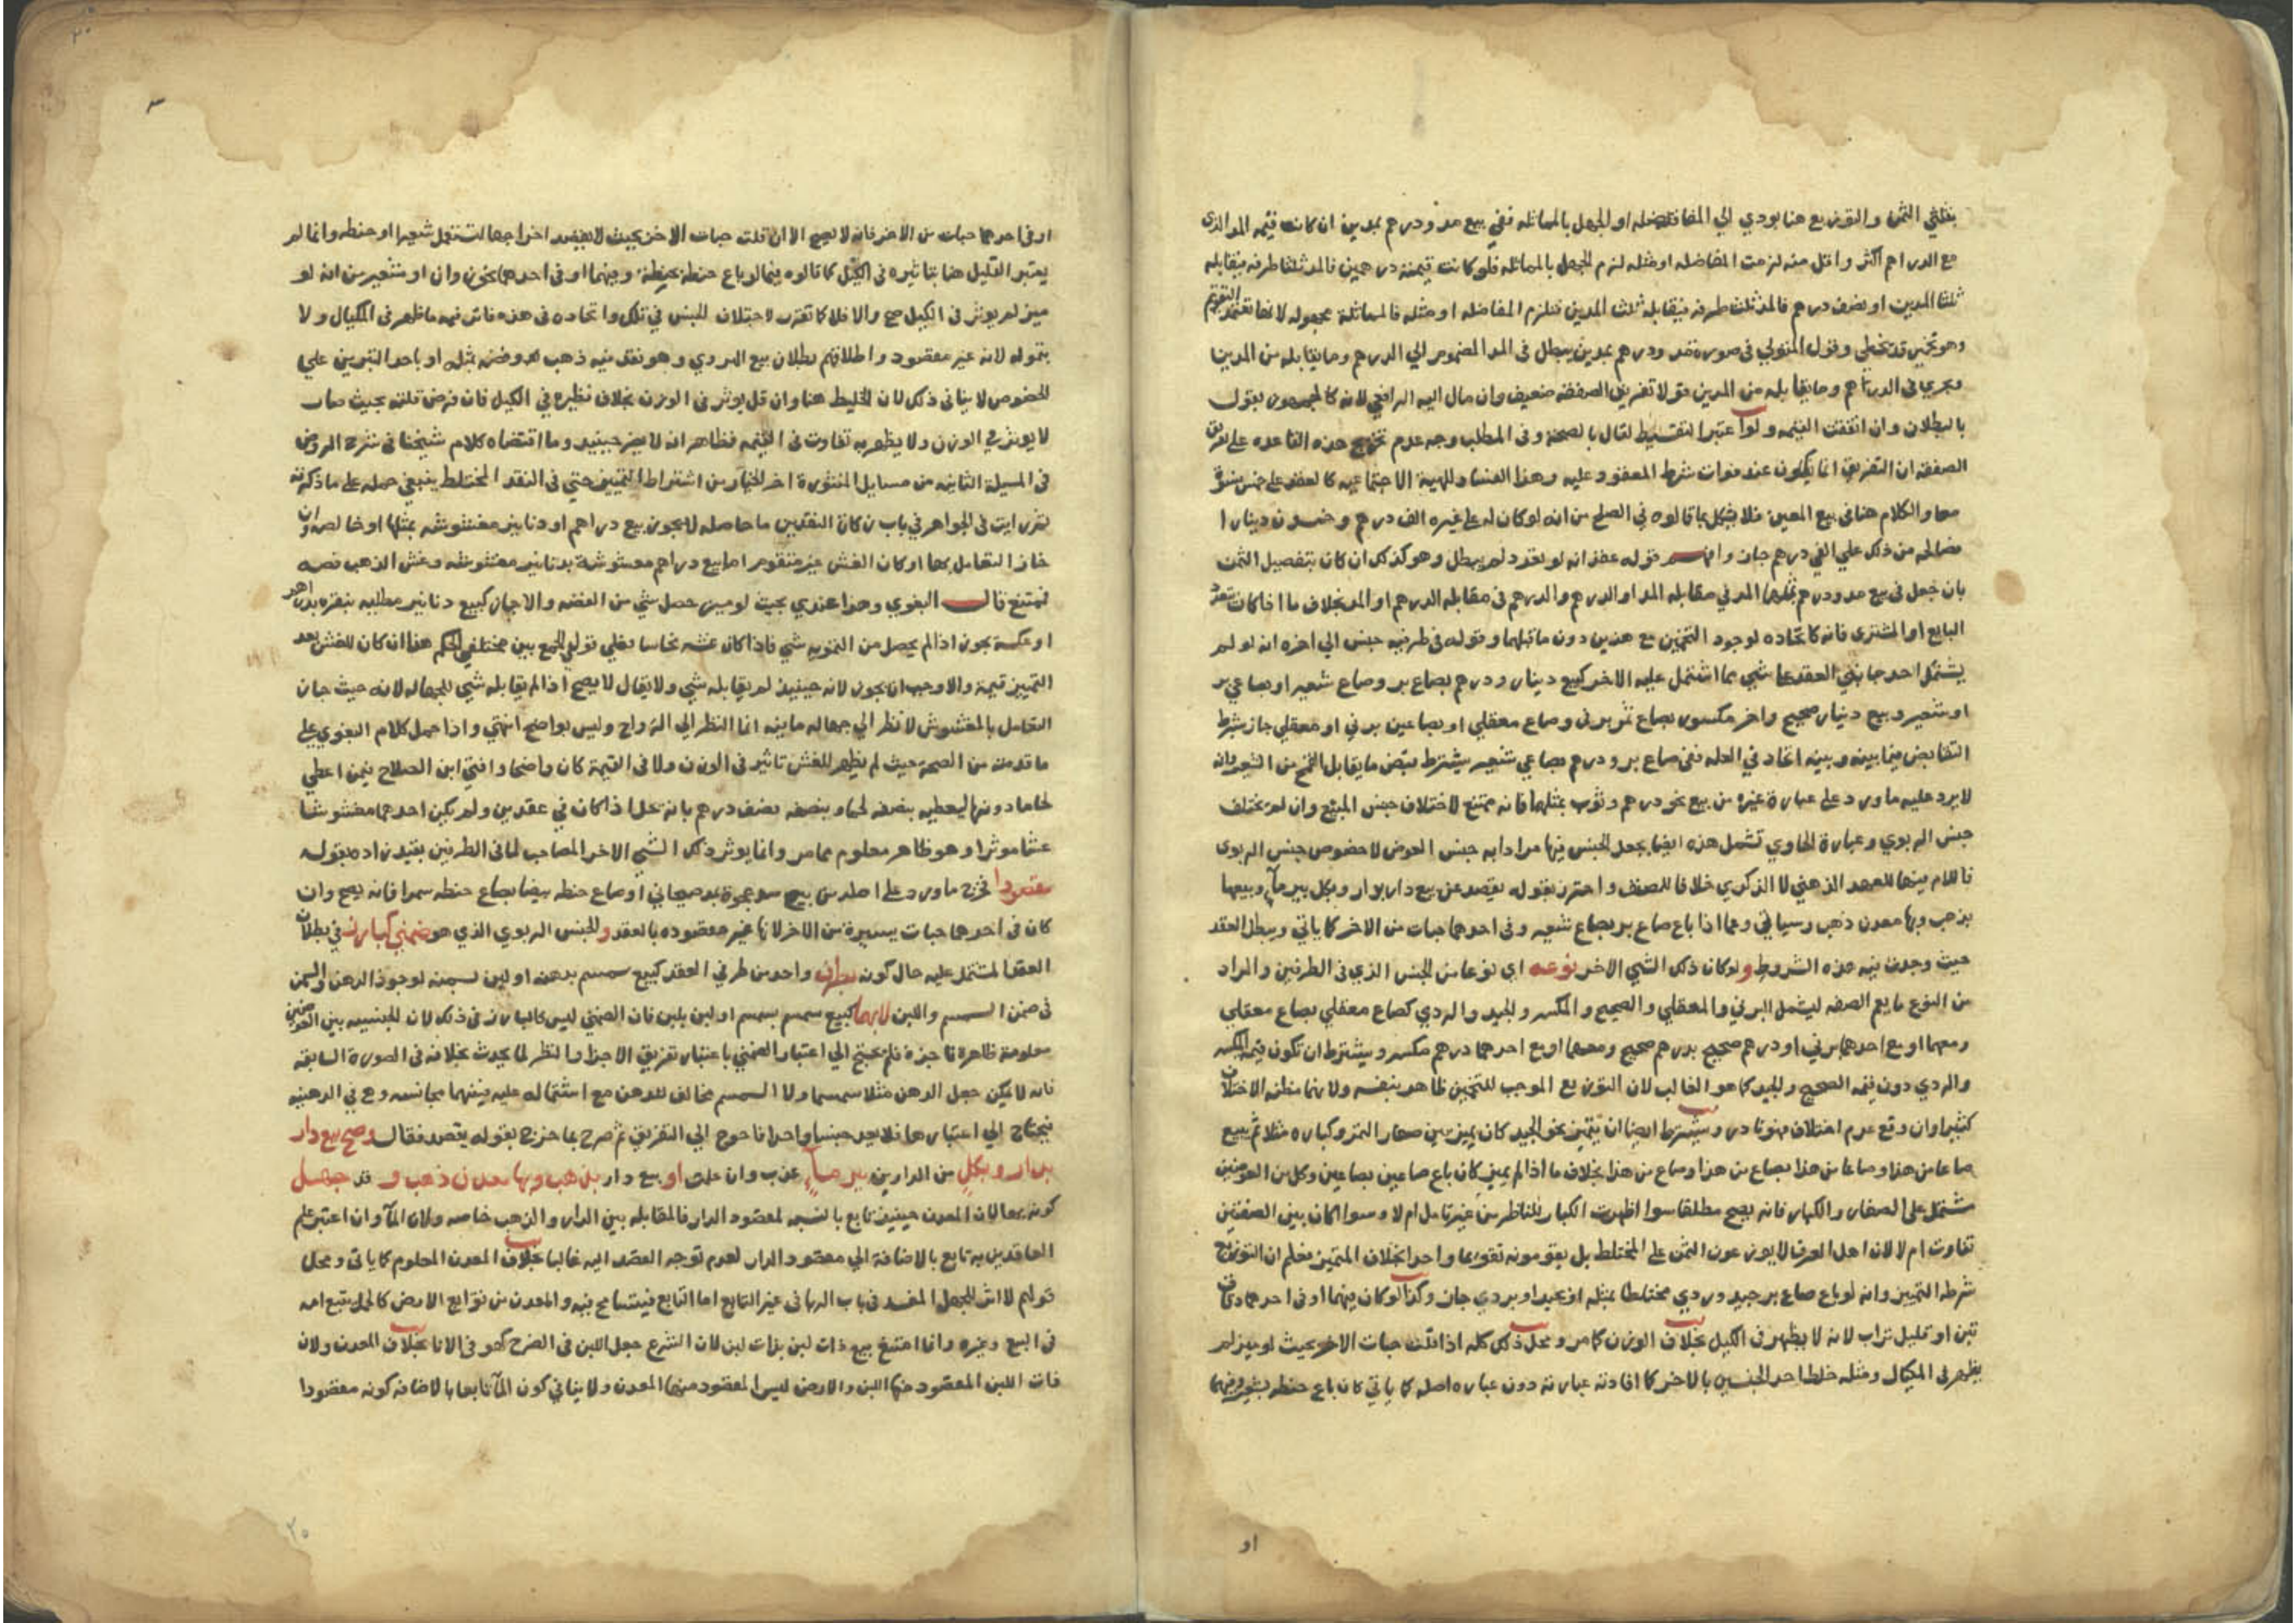 بثلثي الثمن والتوزيع هنا يودي الي المفاضله او الجهل بالمماثله ففي بيع مد ودرهم بمدين ان كانت قيمه المد الذي
مع الدراهم اكثر واقل منه لزمت المفاضله او مثله لزم الجهل بالمماثله فلو كانت قيمته درهمين فالمد ثلثا طرفه فيقابله
ثلثا المدين او نصف درهم فالمد ثلث طرفه فيقابله ثلث المدين فتلزم المفاضله او مثله فالمماثلة مجهوله لانها تعتمد التقويم
وهو تخمين قد يخطي وقول المتولي في صورة مد ودرهم بمدين يبطل في المد المضموم الي الدرهم وما يقابله من المدين
ويجري في الدرهم وما يقابله من المدين قولا تفريق الصفقه ضعيف وان مال اليه الرافعي لانه كالجمهور يقول
بالبطلان وان اتفقت القيمه ولو اعتبرا لتقسيط لقال بالصحة وفي المطلب وجه عدم تخريج هذه القاعده على تفريق
الصفقه ان التفريق انما يكون عند فوات شرط المعقود عليه وهذا الفساد للهية الاجتماعيه كالعقد على خمس نسوة
معا والكلام هنا في بيع المعين فلا يشكل بما قالوه في الصلح من انه لو كان له على غيره الف درهم وخمسون دينارا
فصالحه من ذلك علي الفي درهم جاز وافهم قوله عقد انه لو تعدد لم يبطل وهو كذلك ان كان بتفصيل الثمن
بان جعل في بيع مد ودرهم بمثلهما المد في مقابله المد او الدرهم والدرهم في مقابله الدرهم او المد بخلاف ما اذا كان بتعدد
البايع او المشتري فانه كاتحاده لوجود التخمين مع هذين دون ما قبلهما وقوله في طرفيه جنس الي اخره انه لو لم
يشتمل احد جانبي العقد علي شي مما اشتمل عليه الاخر كبيع دينار ودرهم بصاع بر وصاع شعير او بصاعي بر
او شعير وبيع دينار صحيح واخر مكسور بصاع تمر برني وصاع معقلي او بصاعين برني او معقلي جاز بشرط
التقابض فيما بينه وبينه اتحاد في العله ففي صاع بر ودرهم بصاعي شعير يشترط قبض ما يقابل القمح من الشعير وانه
لا يرد عليه ما ورد على عبارة غيره من بيع نحو درهم وثوب بمثلهما فانه ممتنع لاختلاف جنس المبيع وان لم يختلف
جنس الربوي وعبارة الحاوي تشمل هذه ايضا بجعل الجنس فيها مرادا به جنس العوض لا خصوص جنس الربوي
فاللام فيها للعهد الذهني لا الذكري خلافا للمصنف واحترز بقوله يقصد عن بيع دار بدار وبكل بير ماء وبيعها
بذهب وبها معدن ذهب وسياتي وعما اذا باع صاع بر بصاع شعير وفي احدهما حبات من الاخر كما ياتي ويبطل العقد
حيث وجدت فيه هذه الشروط ولو كان ذلك الشي الاخر نوعه اي نوعا من الجنس الذي في الطرفين والمراد
من النوع ما يعم الصفه ليشمل البرني والمعقلي والصحيح والمكسر والجيد والردي كصاع معقلي بصاع معقلي
ومعهما او مع احدهما برني او درهم صحيح بدرهم صحيح ومعهما او مع احدهما درهم مكسر ويشترط ان تكون قيمه المكسر
والردي دون قيمه الصحيح والجيد كما هو الغالب لان التوزيع الموجب للتخمين ظاهر بنفسه ولانها مظنه الاختلاف
كثيرا وان وقع عدم اختلاف فهو نادر ويشترط ايضا ان يتميز نحو الجيد كان يميز بين صغار التمر وكباره مثلا ثم يبيع
صاعا من هذا وصاعا من هذا بصاع من هذا وصاع من هذا بخلاف ما اذا لم يميز كان باع صاعين بصاعين وكل من العوضين
مشتمل على الصغار والكبار فانه يصح مطلقا سوا اظهرت الكبار للناظر من غير تامل ام لا وسوا اكان بين الصفتين
تفاوت ام لا لان اهل العرف لا يوزعون الثمن على المختلط بل يقومونه تقويما واحدا بخلاف المتميز فعلم ان التوزيع
شرطه التمييز وانه لو باع صاع بر جيد وردي مختلطا بمثله او بجيد او بردي جاز وكذا لو كان فيهما او في احدهما دقاق
تبن او قليل تراب لانه لا يظهر في الكيل بخلاف الوزن كما مر ومحل ذلك كله اذا قلت حبات الاخر بحيث لو ميز لم
يظهر في المكيال ومثله خلط احد الجنسين بالاخر كما افادته عبارته دون عباره اصله كما ياتي كان باع حنطه بشعير وفيهما
او
او في احدهما حبات من الاخر فانه لا يصح الا ان قلت حبات الاخر بحيث لا يقصد اخراجها لتستعمل شعيرا او حنطه وانما لم
يعتبر القليل هنا بتاثيره في الكيل كما قالوه فيما لو باع حنطة بحنطة وفيهما او في احدهما نحو زوان او شعير من انه لو
ميز لم يوثر في الكيل صح والا فلا كما تقرر لاختلاف الجنس في تلك واتحاده في هذه فاثر فيه ما ظهر في المكيال ولا
بتموله لانه غير مقصود واطلاقهم بطلان بيع الهروي وهو نقد فيه ذهب وفضه بمثله او باحد التبرين علي
الخصوص لا ينافي ذلك لان الخليط هنا وان قل يوثر في الوزن بخلاف نظيره في الكيل فان فرض قلته بحيث صار
لا يوثر في الوزن ولا يظهر به تفاوت في القيمه فظاهر انه لا يضر حينيذ وما اقتضاه كلام شيخنا في شرح الروض
في المسيلة الثانيه من مسايل المنثورة اخر الخيار من اشتراط التمييز حتي في النقد المختلط ينبغي حمله على ما ذكرته
ثم رايت في الجواهر في باب زكاة النقدين ما حاصله لا يجوز بيع دراهم او دنانير مغشوشه بمثلها او خالصه وان
جاز التعامل بها او كان الغش غير متقوم اما بيع دراهم مغشوشة بدنانير مغشوشه وغش الذهب فضه
فممتنع قال البغوي وهذا عندي بحيث لو ميز حصل شي من الفضه والا جاز كبيع دنانير مطليه بنقره بدراهم
او عكسه يجوز اذا لم يحصل من التمويه شي فاذا كان غشه نحاسا فعلي قولي الجمع بين مختلفي الحكم هذا ان كان للغش بعد
التمييز قيمة والاوجب ان يجوز لانه حينيذ لم يقابله شي ولا يقال لا يصح اذا لم يقابله شي للجهاله لانه حيث جاز
التعامل بالمغشوش لا نظر الي جهاله ما فيه انما النظر الي الرواج وليس بواضح انتهي واذا حمل كلام البغوي على
ما قدمته من الصحة حيث لم يظهر للغش تاثير في الوزن ولا في القيمة كان واضحا وافتي ابن الصلاح فيمن اعطي
لحاما درهما ليعطيه بنصفه لحما وبنصفه نصف درهم بانه يحل اذا كان في عقدين ولم يكن احدهما مغشوشا
غشا موثرا وهو ظاهر معلوم مما مر وانما يوثر ذلك الشي الاخر المصاحب لما في الطرفين بقيد زاده بقوله
مقصودا فخرج ما ورد على اصله من بيع مد عجوة بمد صيحاني او صاع حنطه بيضا بصاع حنطه سمرا فانه يصح وان
كان في احدهما حبات يسيرة من الاخر لانها غير مقصوده بالعقد والجنس الربوي الذي هو ضمني كبارز في بطلان
العقد المشتمل عليه حال كونه بطرف واحد من طرفي العقد كبيع سمسم بدهنه او لبن بسمنه لوجود الدهن والسمن
في ضمن السمسم واللبن لا بهما كبيع سمسم بسمسم او لبن بلبن فان الضمني ليس كالبارز في ذلك لان الجنسيه بين العوضين
معلومة ظاهرة ناجزة فلم يحتج الي اعتبار الضمني باعتبار تفريق الاجزا والنظر لما يحدث بخلافه في الصورة السابقه
فانه لا يمكن جعل الدهن مثلا سمسما ولا السمسم مخالف للدهن مع اشتماله عليه فبينهما مجانسه وهي في الدهنيه
فيحتاج الي اعتبارها فلا يجد جنسا واحدا فاحوج الي التفريق ثم صرح بما خرج بقوله يقصد فقال وصح بيع دار
بدار وبكل من الدارين بير ماء عذب وان علم او بيع دار بذهب وبها معدن ذهب و قد جهل
كونه بها لان المعدن حينيذ تابع بالنسبه لمقصود الدار فالمقابله بين الدار والذهب خاصه ولان الماء وان اعتبر علم
العاقدين به تابع بالاضافة الي مقصود الدار لعدم توجه القصد اليه غالبا بخلاف المعدن المعلوم كما ياتي ومحل
قولهم لا اثر للجهل المفسد في باب الربا في غير التابع اما التابع فيتسامح فيه والمعدن من توابع الارض كالحمل يتبع امه
في البيع وغيره وانما امتنع بيع ذات لبن بذات لبن لان الشرع جعل اللبن في الضرع كهو في الانا بخلاف المعدن ولان
ذات اللبن المقصود منها اللبن والارض ليس المقصود منها المعدن ولا ينافي كون الماء تابعا بالاضافه كونه مقصودا